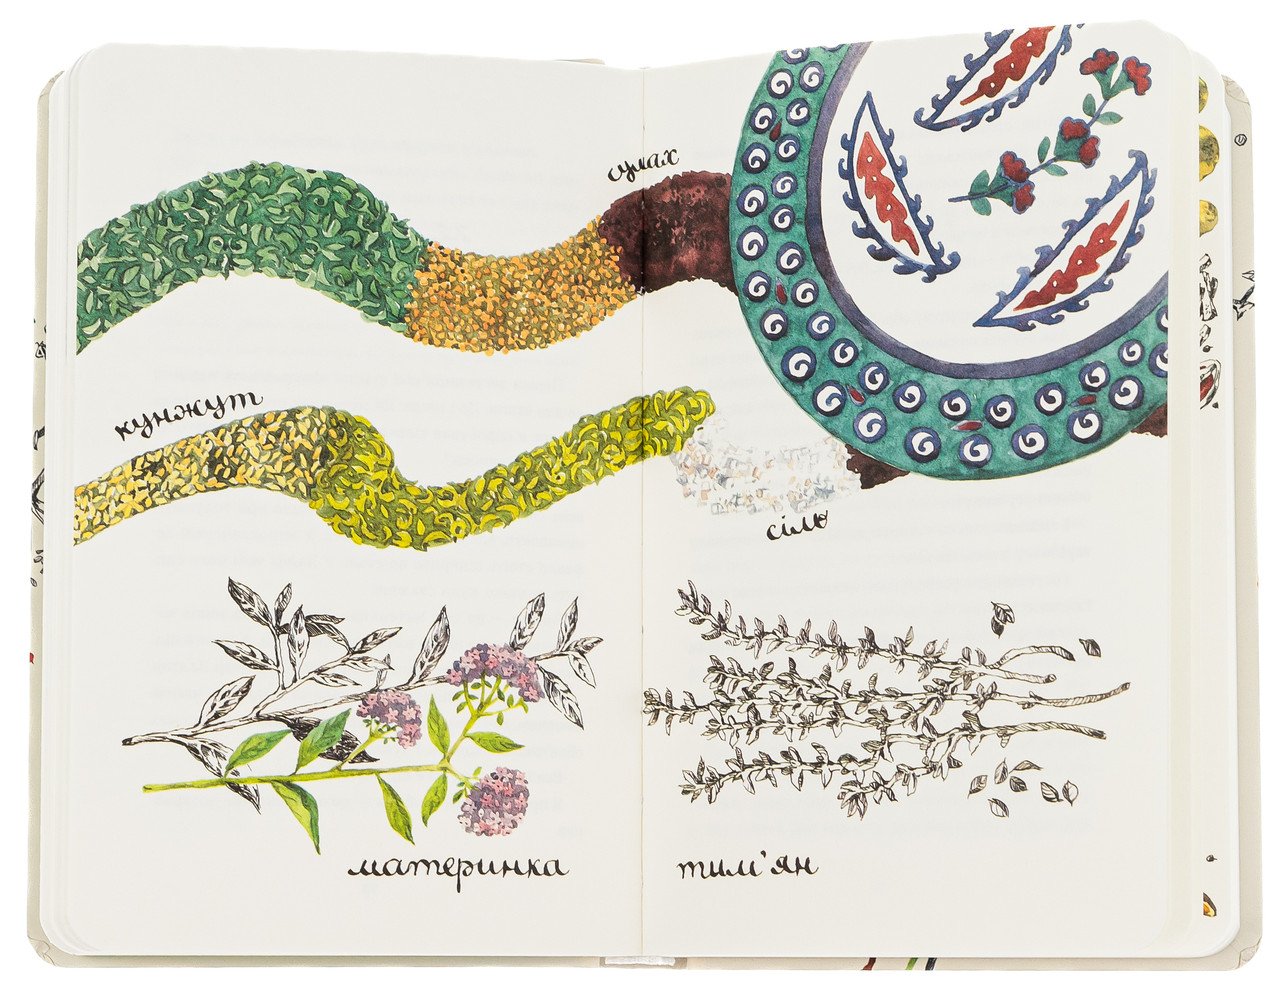 сумах
кунжут
сіль
материнка
тим'ян